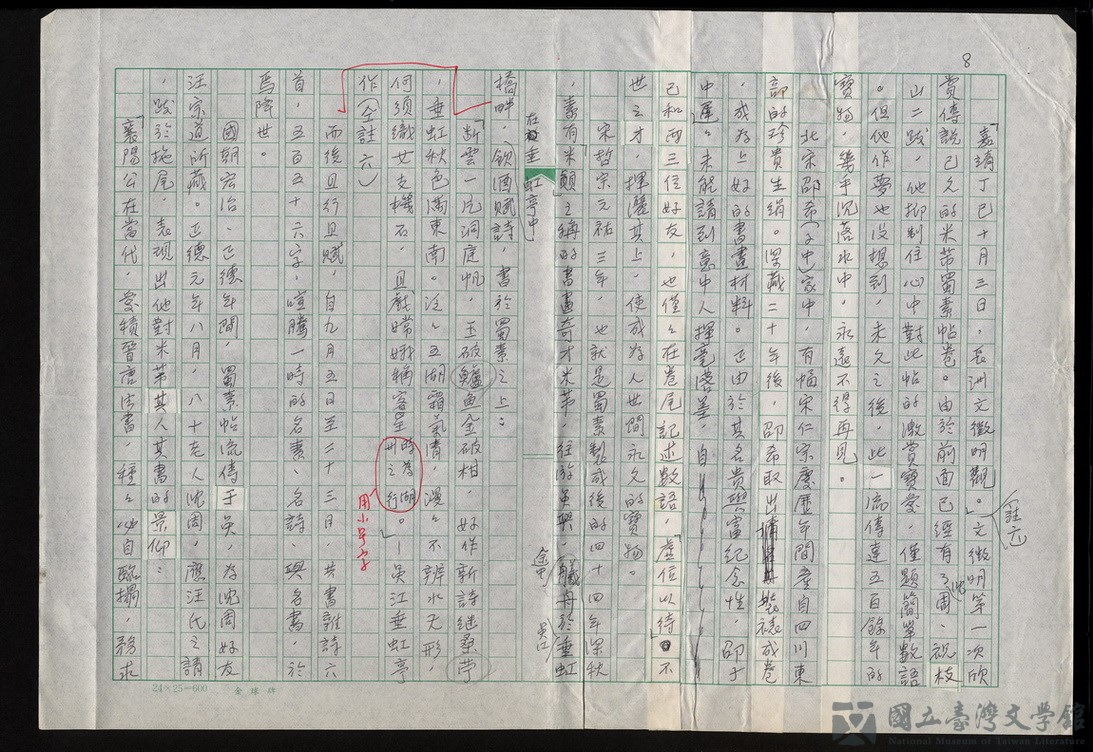 8
「嘉靖丁巳十月三日,長洲文徵明觀。」文徵明第一次欣
(註六)
賞傳說已久的米芾蜀素帖卷。由於前面已經有了沈周、祝枝
山二跋,他抑制住心中對此帖的激賞寶愛,僅題簡單數語
。但他作夢也沒想到,未久之後,此一流傳達五百餘年的
寶物,幾乎沉落水中,永遠不得再見。
北宋邵希(子中)家中,有幅宋仁宗慶歷年間產自四川東
部的珍貴生絹。深藏二十年後,邵希取出裝裱成卷
,成為上好的書畫材料。正由於其名貴與富紀念性,邵子
中遲遲未能請到意中人揮毫落墨,自
己和兩三位好友,也僅僅在卷尾記述數語,「虛位以待」不
世之才,揮灑其上,使成為人世間永久的寶物。
宋哲宗元祐三年,也就是蜀素製成後的四十四年深秋
,素有「米顛」之稱的書畫奇才米芾,往游吳興,途中艤舟於吳江垂虹
在垂虹亭中
橋畔,飲酒賦詩,書於蜀素之上:
「斷雲一片洞庭帆,玉破鱸魚金破柑,好作新詩繼桑苧
,垂虹秋色滿東南。泛泛五湖霜氣清,漫漫不辨水天形,
何須織女支機石,且戲嫦娥稱客星時為湖州之行。」—吳江垂虹亭
用小號字
作(仝註六)
而後且行且賦,自九月五日至二十三日,共書雜詩六
首,五百五十六字,喧騰一時的名素、名詩、與名書,於
焉降世。
國朝宏治、正德年間,蜀素帖流傳于吳,為沈周好友
汪宗道所藏。正德元年八月,八十老人沈周,應汪氏之請
,跋於拖尾,表現出他對米芾其人其書的景仰:
「襄陽公在當代,愛積晉唐法書,種種必自臨搨,務求
24×25=600 金球牌
國立臺灣文學館
National Museum of Taiwan Literature